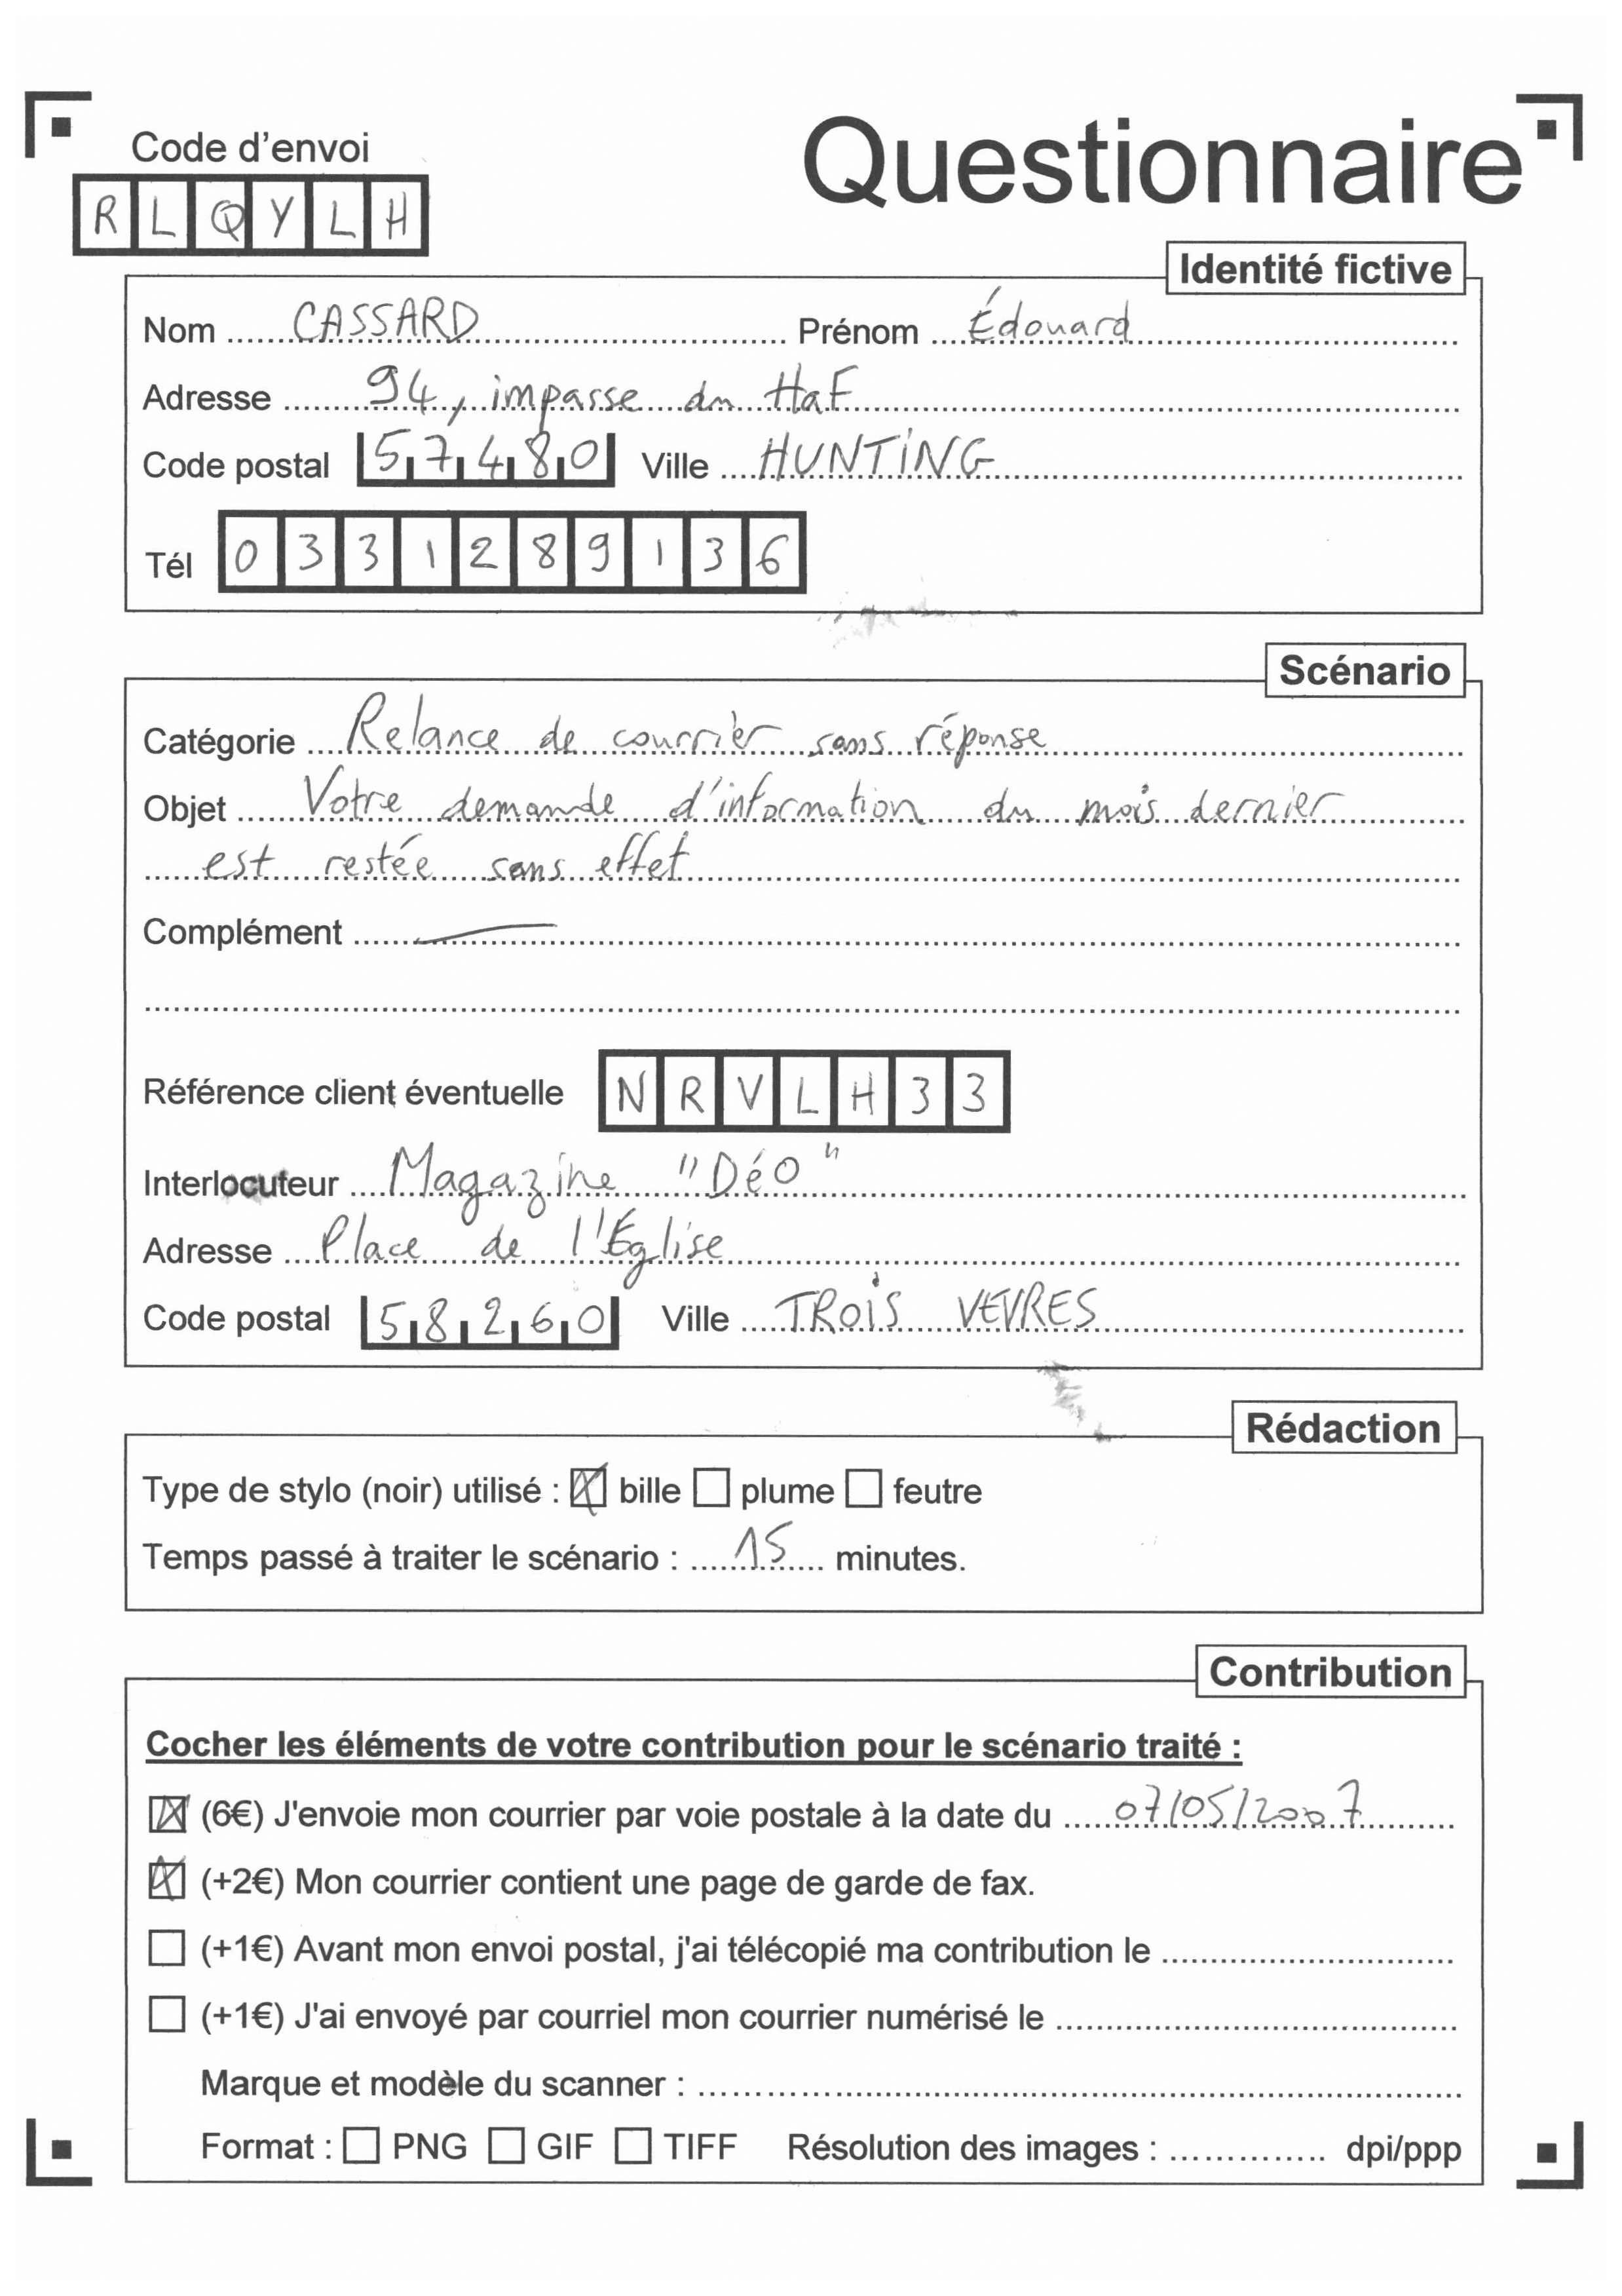 Code d'envoi
Questionnaire
R L Q Y L H
Identité fictive
Nom CASSARD Prénom Édouard
Adresse 94, impasse du HaF
Code postal 57480 Ville HUNTING
Tél 0331289136
Scénario
Catégorie Relance de courrier sans réponse
Objet Votre demande d'information du mois dernier
est restée sans effet
Complément
Référence client éventuelle NRVLH33
Interlocuteur Magazine "Déo"
Adresse Place de l'Église
Code postal 58260 Ville TROIS VEVRES
Rédaction
Type de stylo (noir) utilisé : bille plume feutre
Temps passé à traiter le scénario : 15 minutes.
Contribution
Cocher les éléments de votre contribution pour le scénario traité :
(6€) J'envoie mon courrier par voie postale à la date du 07/05/2007
(+2€) Mon courrier contient une page de garde de fax.
(+1€) Avant mon envoi postal, j'ai télécopié ma contribution le
(+1€) J'ai envoyé par courriel mon courrier numérisé le
Marque et modèle du scanner :
Format : PNG GIF TIFF Résolution des images : dpi/ppp